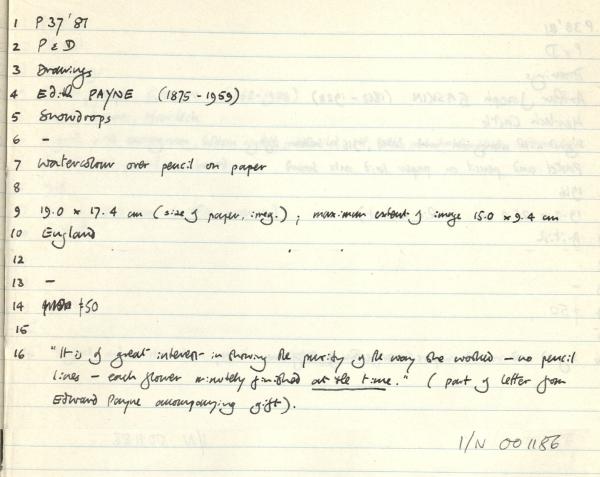 1 P 37'81
2 P & D
3 Drawings
4 Edith PAYNE (1875-1959)
5 Snowdrops
6 -
7 Watercolour over pencil on paper
8
9 19.0 x 17.4 cm (size of paper, irreg.); maximum extent of image 15.0 x 9.4 cm
10 England
12
13 -
14 £50
15
16 "It is of great interest in showing the purity of the way she worked - no pencil
lines - each flower minutely finished at the time." (part of letter from
Edward Payne accompanying gift).
I/N 001186